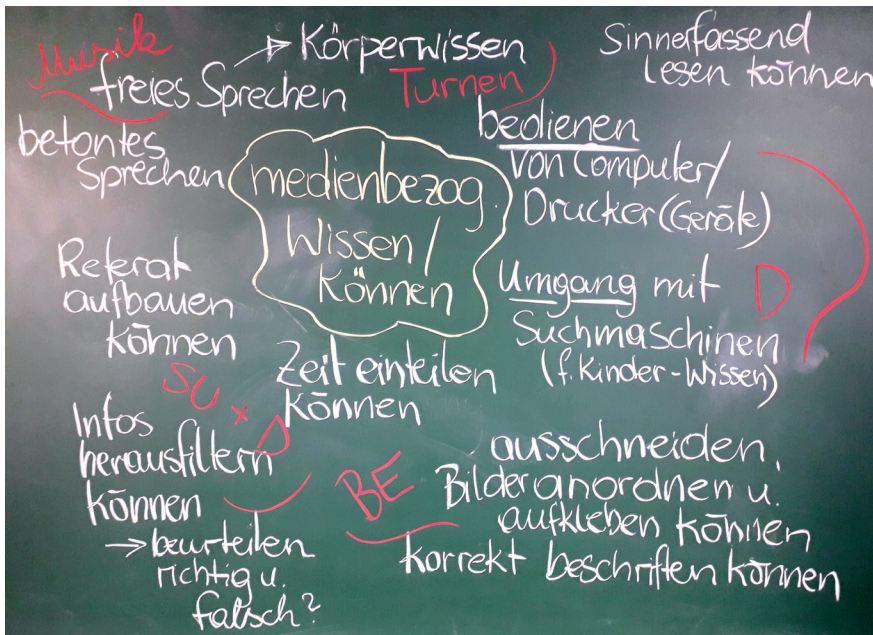 Musik
freies Sprechen
→ Körperwissen
Turnen
Sinnerfassend
lesen können
betontes
Sprechen
medienbezog.
Wissen /
Können
bedienen
von Computer/
Drucker (Geräte)
Referat
aufbauen
können
Umgang mit
Suchmaschinen
(f. Kinder-Wissen)
D
Zeit einteilen
können
SU + D
Infos
herausfiltern
können
→ beurteilen
richtig u.
falsch?
BE
ausschneiden,
Bilder anordnen u.
aufkleben können
korrekt beschriften können